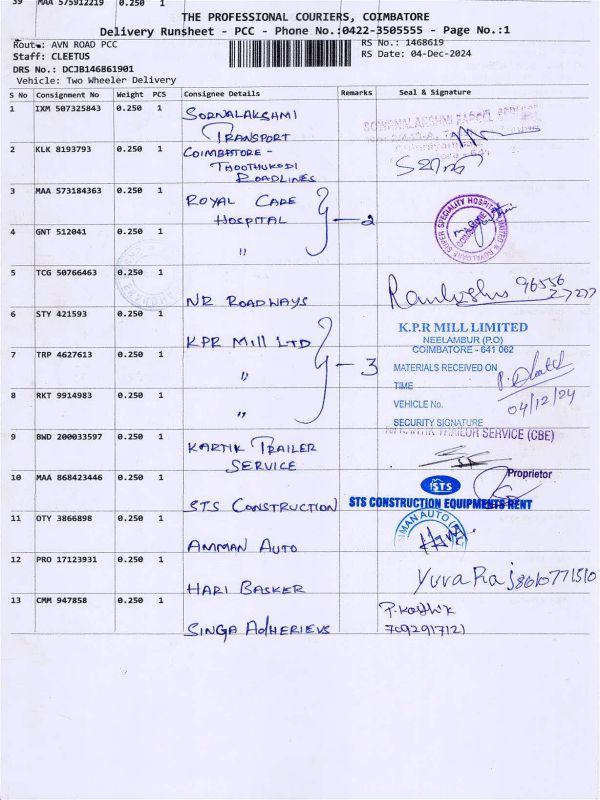 39 MAA 575912219 0.250 1
THE PROFESSIONAL COURIERS, COIMBATORE
Delivery Runsheet - PCC - Phone No.:0422-3505555 - Page No.:1
Route: AVN ROAD PCC
RS No.: 1468619
Staff: CLEETUS
RS Date: 04-Dec-2024
DRS No.: DCJB146861901
Vehicle: Two Wheeler Delivery
S No Consignment No Weight PCS Consignee Details Remarks Seal & Signature
1 IXM 507325843 0.250 1 SORNALAKSHMI
TRANSPORT
2 KLK 8193793 0.250 1 COIMBATORE -
THOOTHUKUDI
ROADLINES
3 MAA 573184363 0.250 1 ROYAL CARE
HOSPITAL
2
4 GNT 512041 0.250 1 "
5 TCG 50766463 0.250 1 NR ROADWAYS
6 STY 421593 0.250 1 KPR MILL LTD
K.P.R MILL LIMITED
NEELAMBUR (P.O)
COIMBATORE - 641 062
7 TRP 4627613 0.250 1 "
3
MATERIALS RECEIVED ON
TIME
8 RKT 9914983 0.250 1 "
VEHICLE No. 04/12/24
SECURITY SIGNATURE
9 BWD 200033597 0.250 1 KARTIK TRAILER
SERVICE
SERVICE (CBE)
Proprietor
10 MAA 868423446 0.250 1 STS CONSTRUCTION
STS
STS CONSTRUCTION EQUIPMENTS RENT
11 OTY 3866898 0.250 1 AMMAN AUTO
12 PRO 17123931 0.250 1 HARI BASKER
YuvaRaj 8610771510
13 CMM 947858 0.250 1 SINGA ADHERIEVS
P. Karthik
7092917121